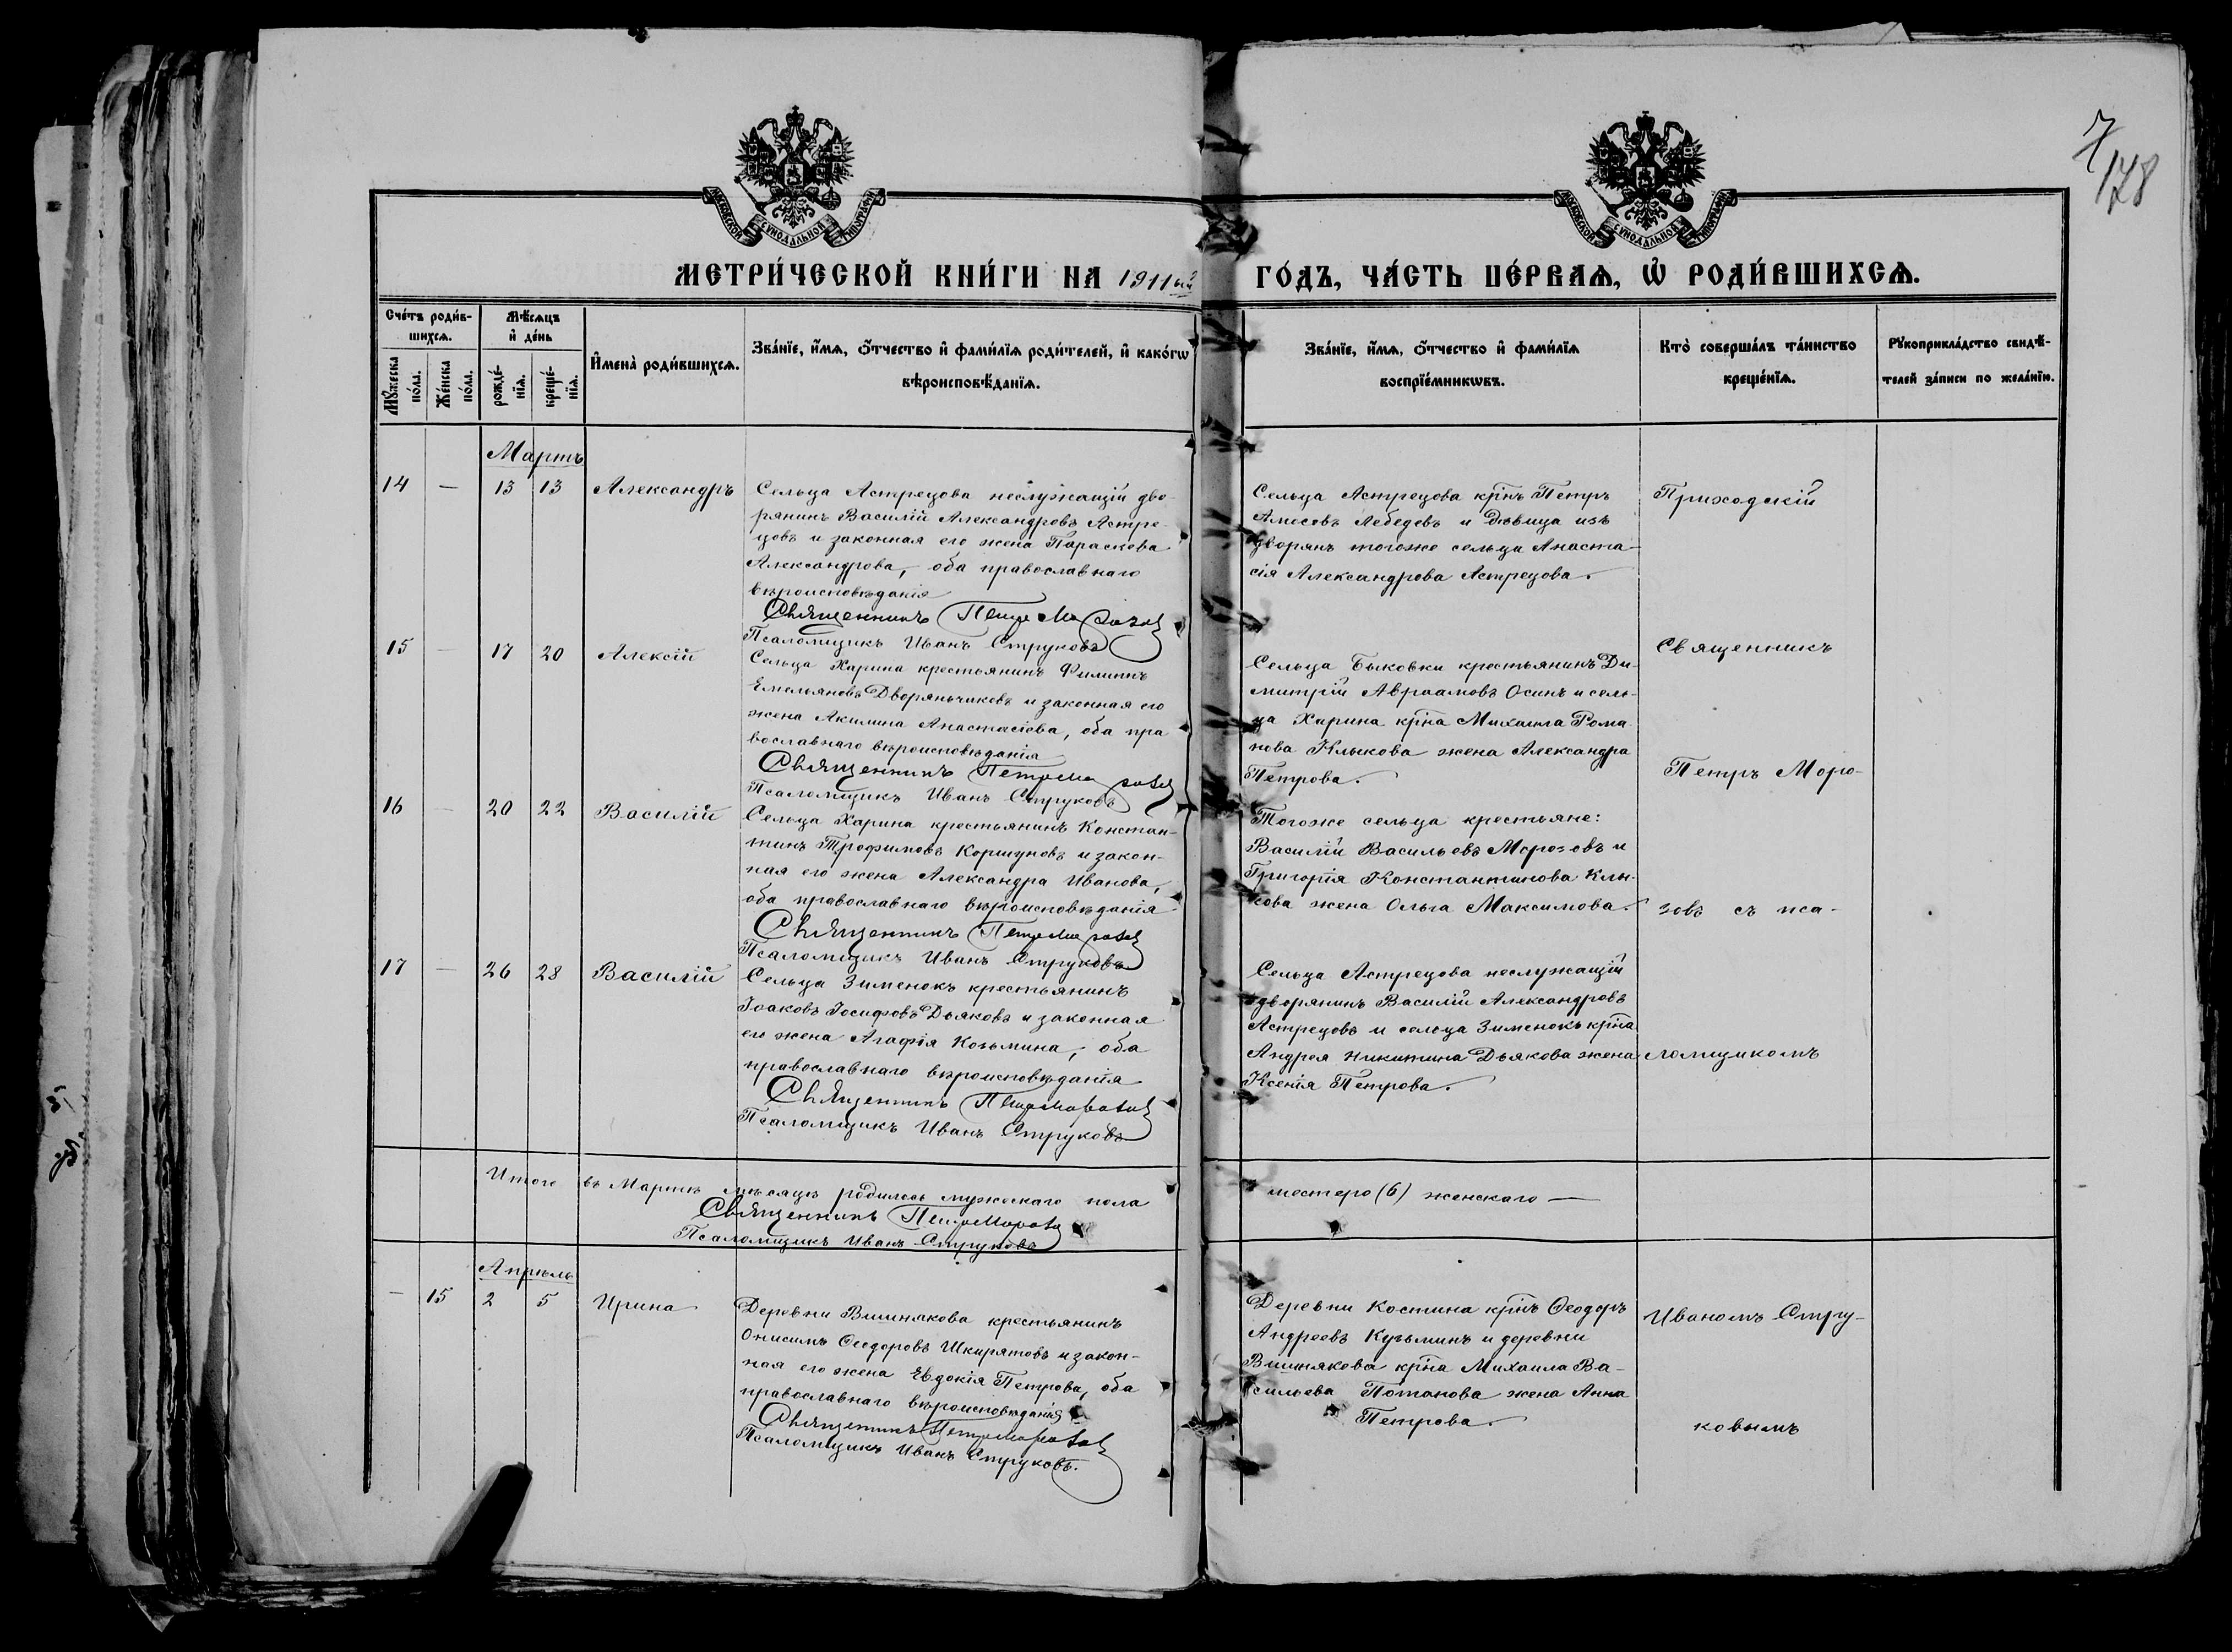 7
178
МОСКОВСКОЙ СѴНОДАЛЬНОЙ ТИПОГРАФІИ
МОСКОВСКОЙ СѴНОДАЛЬНОЙ ТИПОГРАФІИ
МЕТРИ́ЧЕСКОЙ КНИ́ГИ НА 1911ый ГО́ДЪ, ЧА́СТЬ ПЕ́РВАѦ, Ѽ РОДИ́ВШИХСѦ.
Сче́тъ роди́в-
шихсѧ.
Мꙋ́жеска по́ла.
Же́нска по́ла.
Мѣ́сѧцъ
и҆ де́нь
рожде́-
нїѧ.
креще́-
нїѧ.
И҆мена̀ роди́вшихсѧ.
Зва́нїе, и҆́мѧ, ѻ҆́тчество и҆ фами́лїѧ роди́телей, и҆ како́гѡ
вѣроисповѣ́данїѧ.
Зва́нїе, и҆́мѧ, ѻ҆́тчество и҆ фами́лїѧ
воспрїе́мникѡвъ.
Кто̀ соверша́лъ та́инство
креще́нїѧ.
Рꙋкоприкла́дство свидѣ́-
телей за́писи по жела́нїю.
Мартъ
14 — 13 13 Александръ
Сельца Астрецова неслужащій дво-
рянинъ Василій Александровъ Астре-
цовъ и законная его жена Параскева
Александрова, оба православнаго
вѣроисповѣданія
Священникъ Петръ Морозовъ
Псаломщикъ Иванъ Струковъ
Сельца Астрецова крн̃ъ Петръ
Амосовъ Лебедевъ и дѣвица изъ
дворянъ тогоже сельца Анаста-
сія Александрова Астрецова.
Приходскій
15 — 17 20 Алексій
Сельца Харина крестьянинъ Филиппъ
Емельяновъ Дворянчиковъ и законная его
жена Акилина Анастасіева, оба пра
вославнаго вѣроисповѣданія
Священникъ Петръ Морозовъ
Псаломщикъ Иванъ Струковъ
Сельца Быковки крестьянинъ Ди-
митрій Авраамовъ Осинъ и сель-
ца Харина крн̃а Михаила Рома-
нова Клыкова жена Александра
Петрова.
Священникъ
Петръ Моро-
16 — 20 22 Василій
Сельца Харина крестьянинъ Констан-
тинъ Трофимовъ Коршуновъ и закон-
ная его жена Александра Иванова,
оба православнаго вѣроисповѣданія
Священникъ Петръ Морозовъ
Псаломщикъ Иванъ Струковъ
Тогоже сельца крестьяне:
Василій Васильевъ Морозовъ и
Григорія Константинова Клы-
кова жена Ольга Максимова.
зовъ съ пса-
17 — 26 28 Василій
Сельца Зименокъ крестьянинъ
Іоаковъ Іосифовъ Дьяковъ и законная
его жена Агафія Козьмина, оба
православнаго вѣроисповѣданія
Священникъ Петръ Морозовъ
Псаломщикъ Иванъ Струковъ
Сельца Астрецова неслужащій
дворянинъ Василій Александровъ
Астрецовъ и сельца Зименокъ крн̃а
Андрея Никитина Дьякова жена
Ксенія Петрова.
ломщикомъ
Итого въ Мартѣ мѣсяцѣ родилось мужескаго пола шестеро (6) женскаго —
Священникъ Петръ Морозовъ
Псаломщикъ Иванъ Струковъ
Апрѣль
— 15 2 5 Ирина
Деревни Вишнякова крестьянинъ
Онисимъ Ѳеодоровъ Шкирятовъ и закон-
ная его жена Евдокія Петрова, оба
православнаго вѣроисповѣданія
Священникъ Петръ Морозовъ
Псаломщикъ Иванъ Струковъ.
Деревни Костина крн̃ъ Ѳеодоръ
Андреевъ Кузьминъ и деревни
Вишнякова крн̃а Михаила Ва-
сильева Потапова жена Анна
Петрова.
Иваномъ Стру-
ковымъ